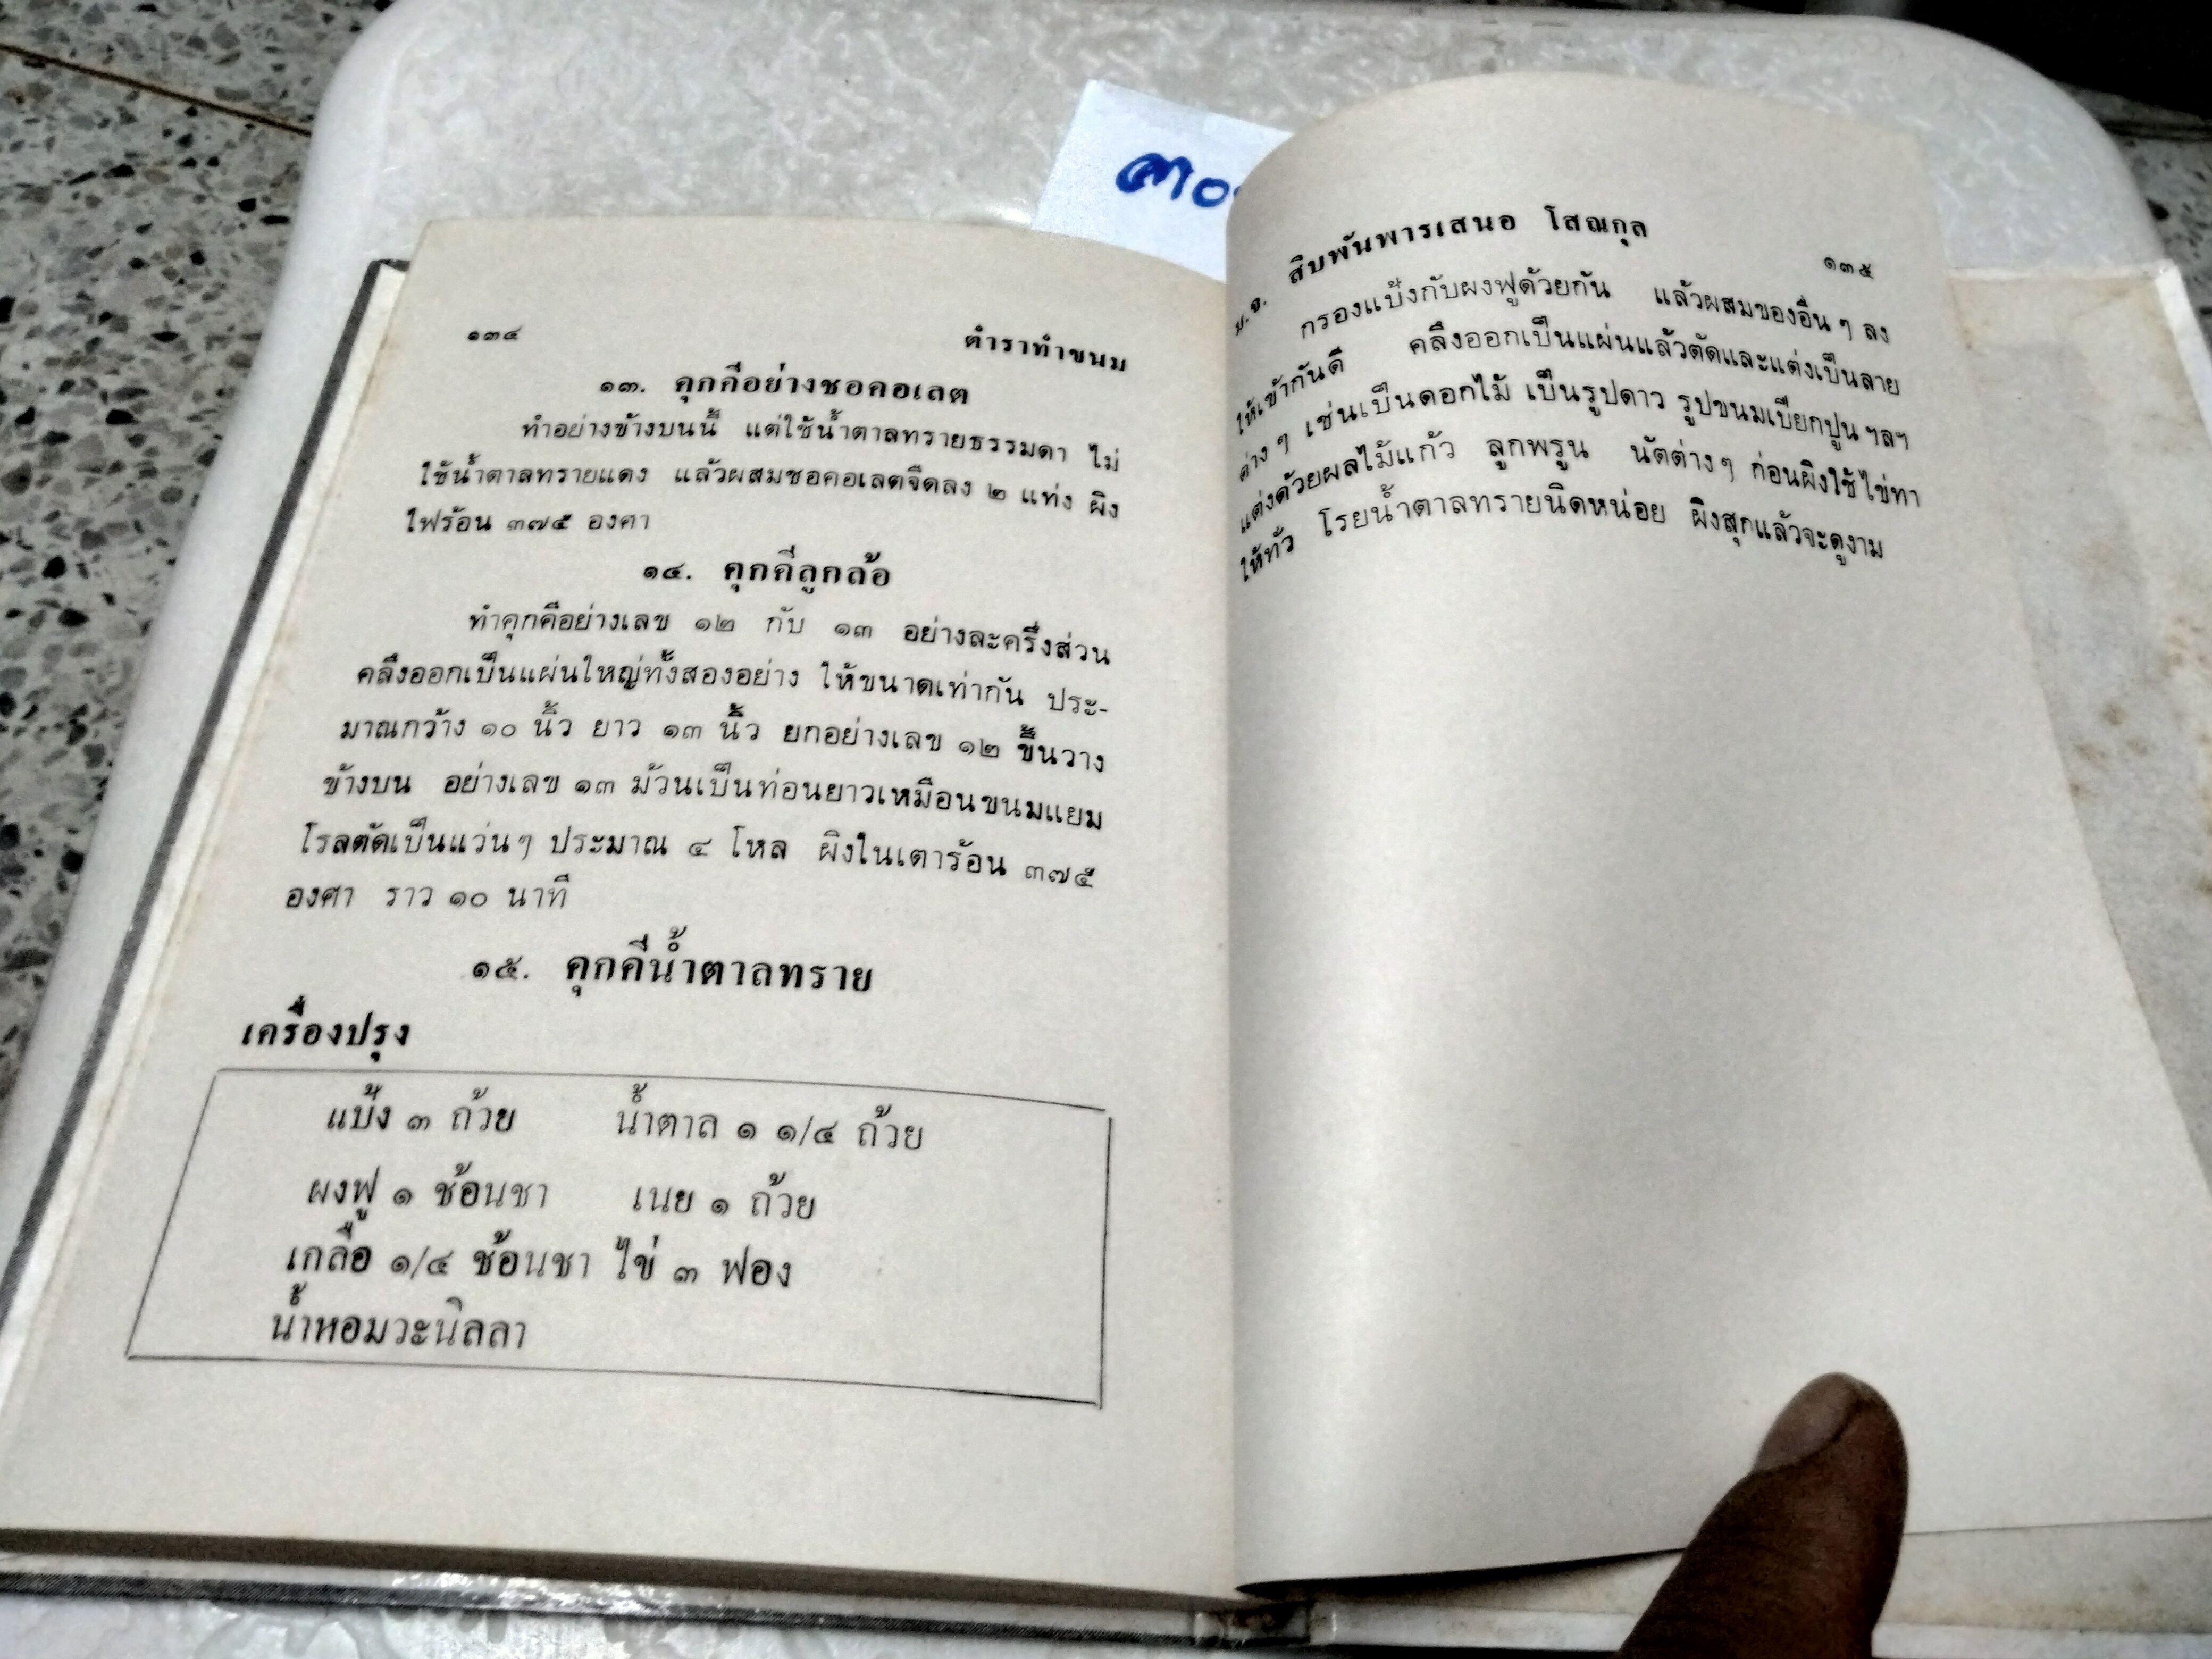 ๓๐
๑๓๔ ตำราทำขนม
๑๓. คุกคีอย่างชอคอเลต
ทำอย่างข้างบนนี้ แต่ใช้น้ำตาลทรายธรรมดา ไม่
ใช้น้ำตาลทรายแดง แล้วผสมชอคอเลตจืดลง ๒ แท่ง ผิง
ไฟร้อน ๓๗๕ องศา
๑๔. คุกคีลูกล้อ
ทำคุกคีอย่างเลข ๑๒ กับ ๑๓ อย่างละครึ่งส่วน
คลึงออกเป็นแผ่นใหญ่ทั้งสองอย่าง ให้ขนาดเท่ากัน ประ-
มาณกว้าง ๑๐ นิ้ว ยาว ๑๓ นิ้ว ยกอย่างเลข ๑๒ ขึ้นวาง
ข้างบน อย่างเลข ๑๓ ม้วนเป็นท่อนยาวเหมือนขนมแยม
โรลตัดเป็นแว่นๆ ประมาณ ๔ โหล ผิงในเตาร้อน ๓๗๕
องศา ราว ๑๐ นาที
๑๕. คุกคีน้ำตาลทราย
เครื่องปรุง
แป้ง ๓ ถ้วย น้ำตาล ๑ ๑/๔ ถ้วย
ผงฟู ๑ ช้อนชา เนย ๑ ถ้วย
เกลือ ๑/๔ ช้อนชา ไข่ ๓ ฟอง
น้ำหอมวะนิลลา
ม.จ. สิบพันพารเสนอ โสณกุล ๑๓๕
กรองแป้งกับผงฟูด้วยกัน แล้วผสมของอื่นๆ ลง
ให้เข้ากันดี คลึงออกเป็นแผ่นแล้วตัดและแต่งเป็นลาย
ต่างๆ เช่นเป็นดอกไม้ เป็นรูปดาว รูปขนมเบียกปูน ฯลฯ
แต่งด้วยผลไม้แก้ว ลูกพรูน นัตต่างๆ ก่อนผิงใช้ไข่ทา
ให้ทั่ว โรยน้ำตาลทรายนิดหน่อย ผิงสุกแล้วจะดูงาม